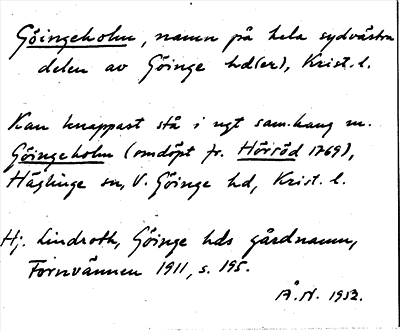 Göingeholm, namn på hela sydvästra
delen av Göinge hd(er), Krist. l.
Kan knappast stå i ngt samhang m.
Göingeholm (omdöpt fr. Hörröd 1769),
Häglinge sn, V. Göinge hd, Krist. l.
Hj. Lindroth, Göinge hds gårdnamn,
Fornvännen 1911, s. 195.
Å.N. 1952.